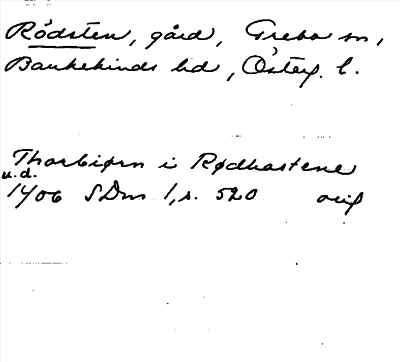 Rödsten, gård, Grebo sn,
Bankekinds hd, Österg. l.
Thorbiørn i Rødhastene
u.d.
1406 SDns 1, s. 520 orig